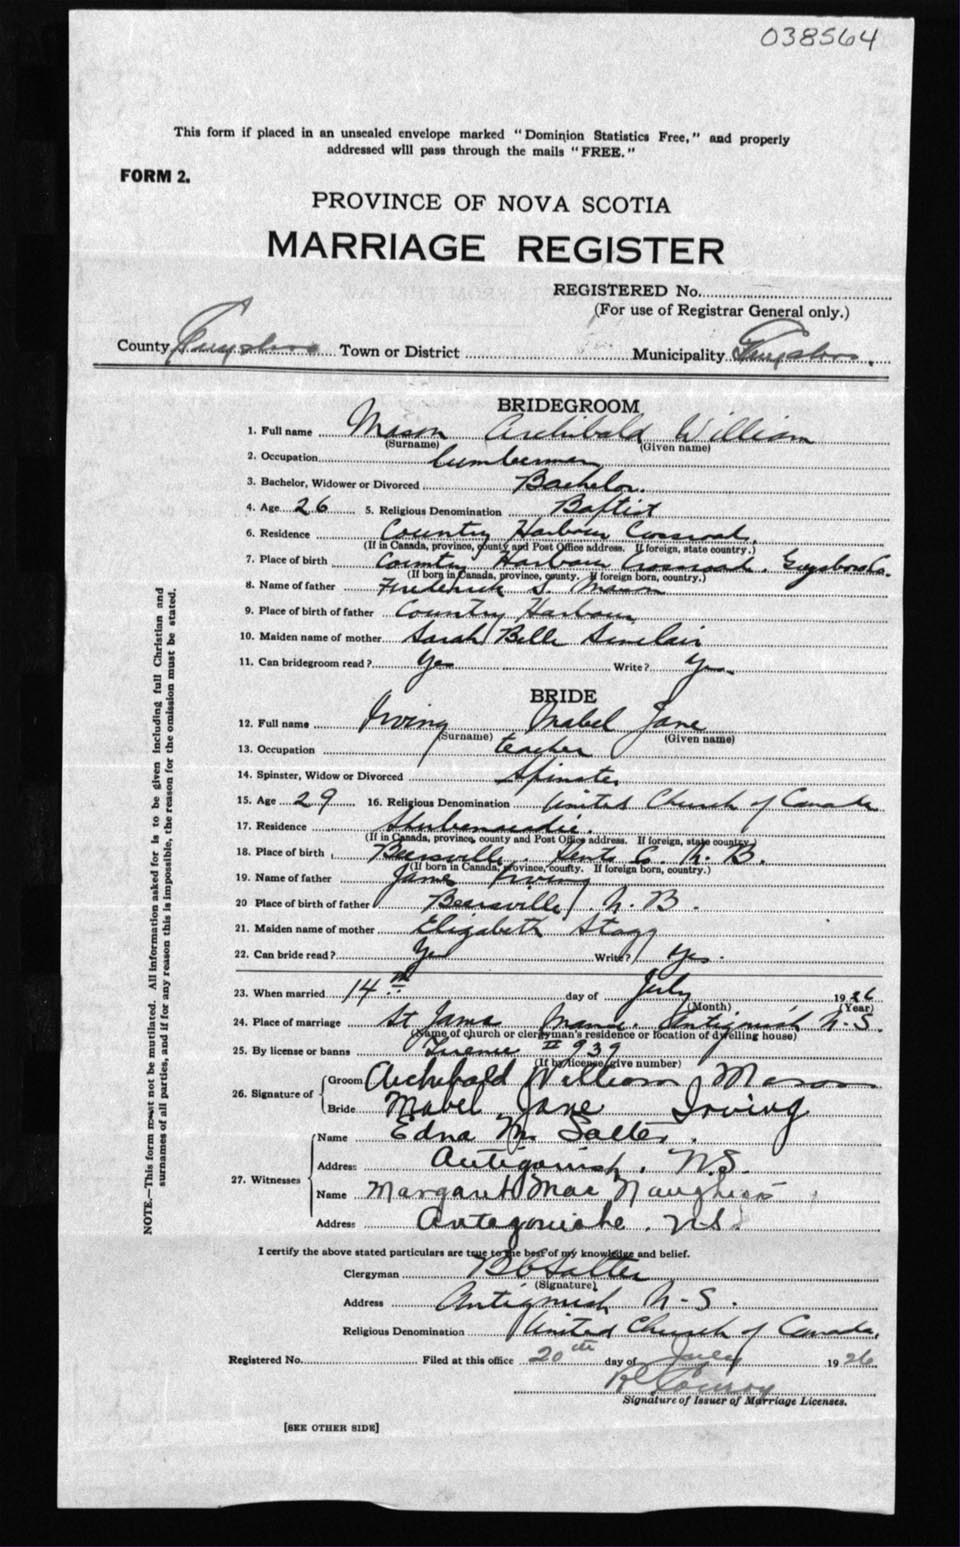 038564
This form if placed in an unsealed envelope marked "Dominion Statistics Free," and properly
addressed will pass through the mails "FREE."
FORM 2.
PROVINCE OF NOVA SCOTIA
MARRIAGE REGISTER
REGISTERED No.
(For use of Registrar General only.)
County Guysboro Town or District Municipality Guysboro.
BRIDEGROOM
1. Full name Mason Archibald William
(Surname) (Given name)
2. Occupation Lumberman
3. Bachelor, Widower or Divorced Bachelor.
4. Age 26 5. Religious Denomination Baptist
6. Residence Country Harbour Crossroads.
(If in Canada, province, county and Post Office address. If foreign, state country.)
7. Place of birth Country Harbour Crossroads. Guysboro Co.
(If born in Canada, province, county. If foreign born, country.)
8. Name of father Frederick S. Mason
9. Place of birth of father Country Harbour
10. Maiden name of mother Sarah Belle Sinclair
11. Can bridegroom read? Yes Write? Yes
BRIDE
12. Full name Irving Mabel Jane
(Surname) (Given name)
13. Occupation teacher
14. Spinster, Widow or Divorced Spinster
15. Age 29 16. Religious Denomination United Church of Canada
17. Residence Shubenacadie.
(If in Canada, province, county and Post Office address. If foreign, state country.)
18. Place of birth Beersville. Kent Co. N. B.
(If born in Canada, province, county. If foreign born, country.)
19. Name of father James Irving
20 Place of birth of father Beersville, N. B.
21. Maiden name of mother Elizabeth Stagg
22. Can bride read? Yes Write? Yes.
23. When married 14th day of July 1926
(Month) (Year)
24. Place of marriage St James Manse. Antigonish N.S.
(Name of church or clergyman's residence or location of dwelling house)
25. By license or banns License II 939
(If by license give number)
26. Signature of Groom Archibald William Mason
Bride Mabel Jane Irving
27. Witnesses Name Edna M. Salter.
Address Antigonish. N.S.
Name Margaret Mac
Address Antegonishe. N.S.
I certify the above stated particulars are true to the best of my knowledge and belief.
Clergyman Salter
(Signature)
Address Antigonish N.S.
Religious Denomination United Church of Canada.
Registered No. Filed at this office 20th day of July 1926
Signature of Issuer of Marriage Licenses.
[SEE OTHER SIDE]
NOTE.—This form must not be mutilated. All information asked for is to be given including full Christian and
surnames of all parties, and if for any reason this is impossible, the reason for the omission must be stated.